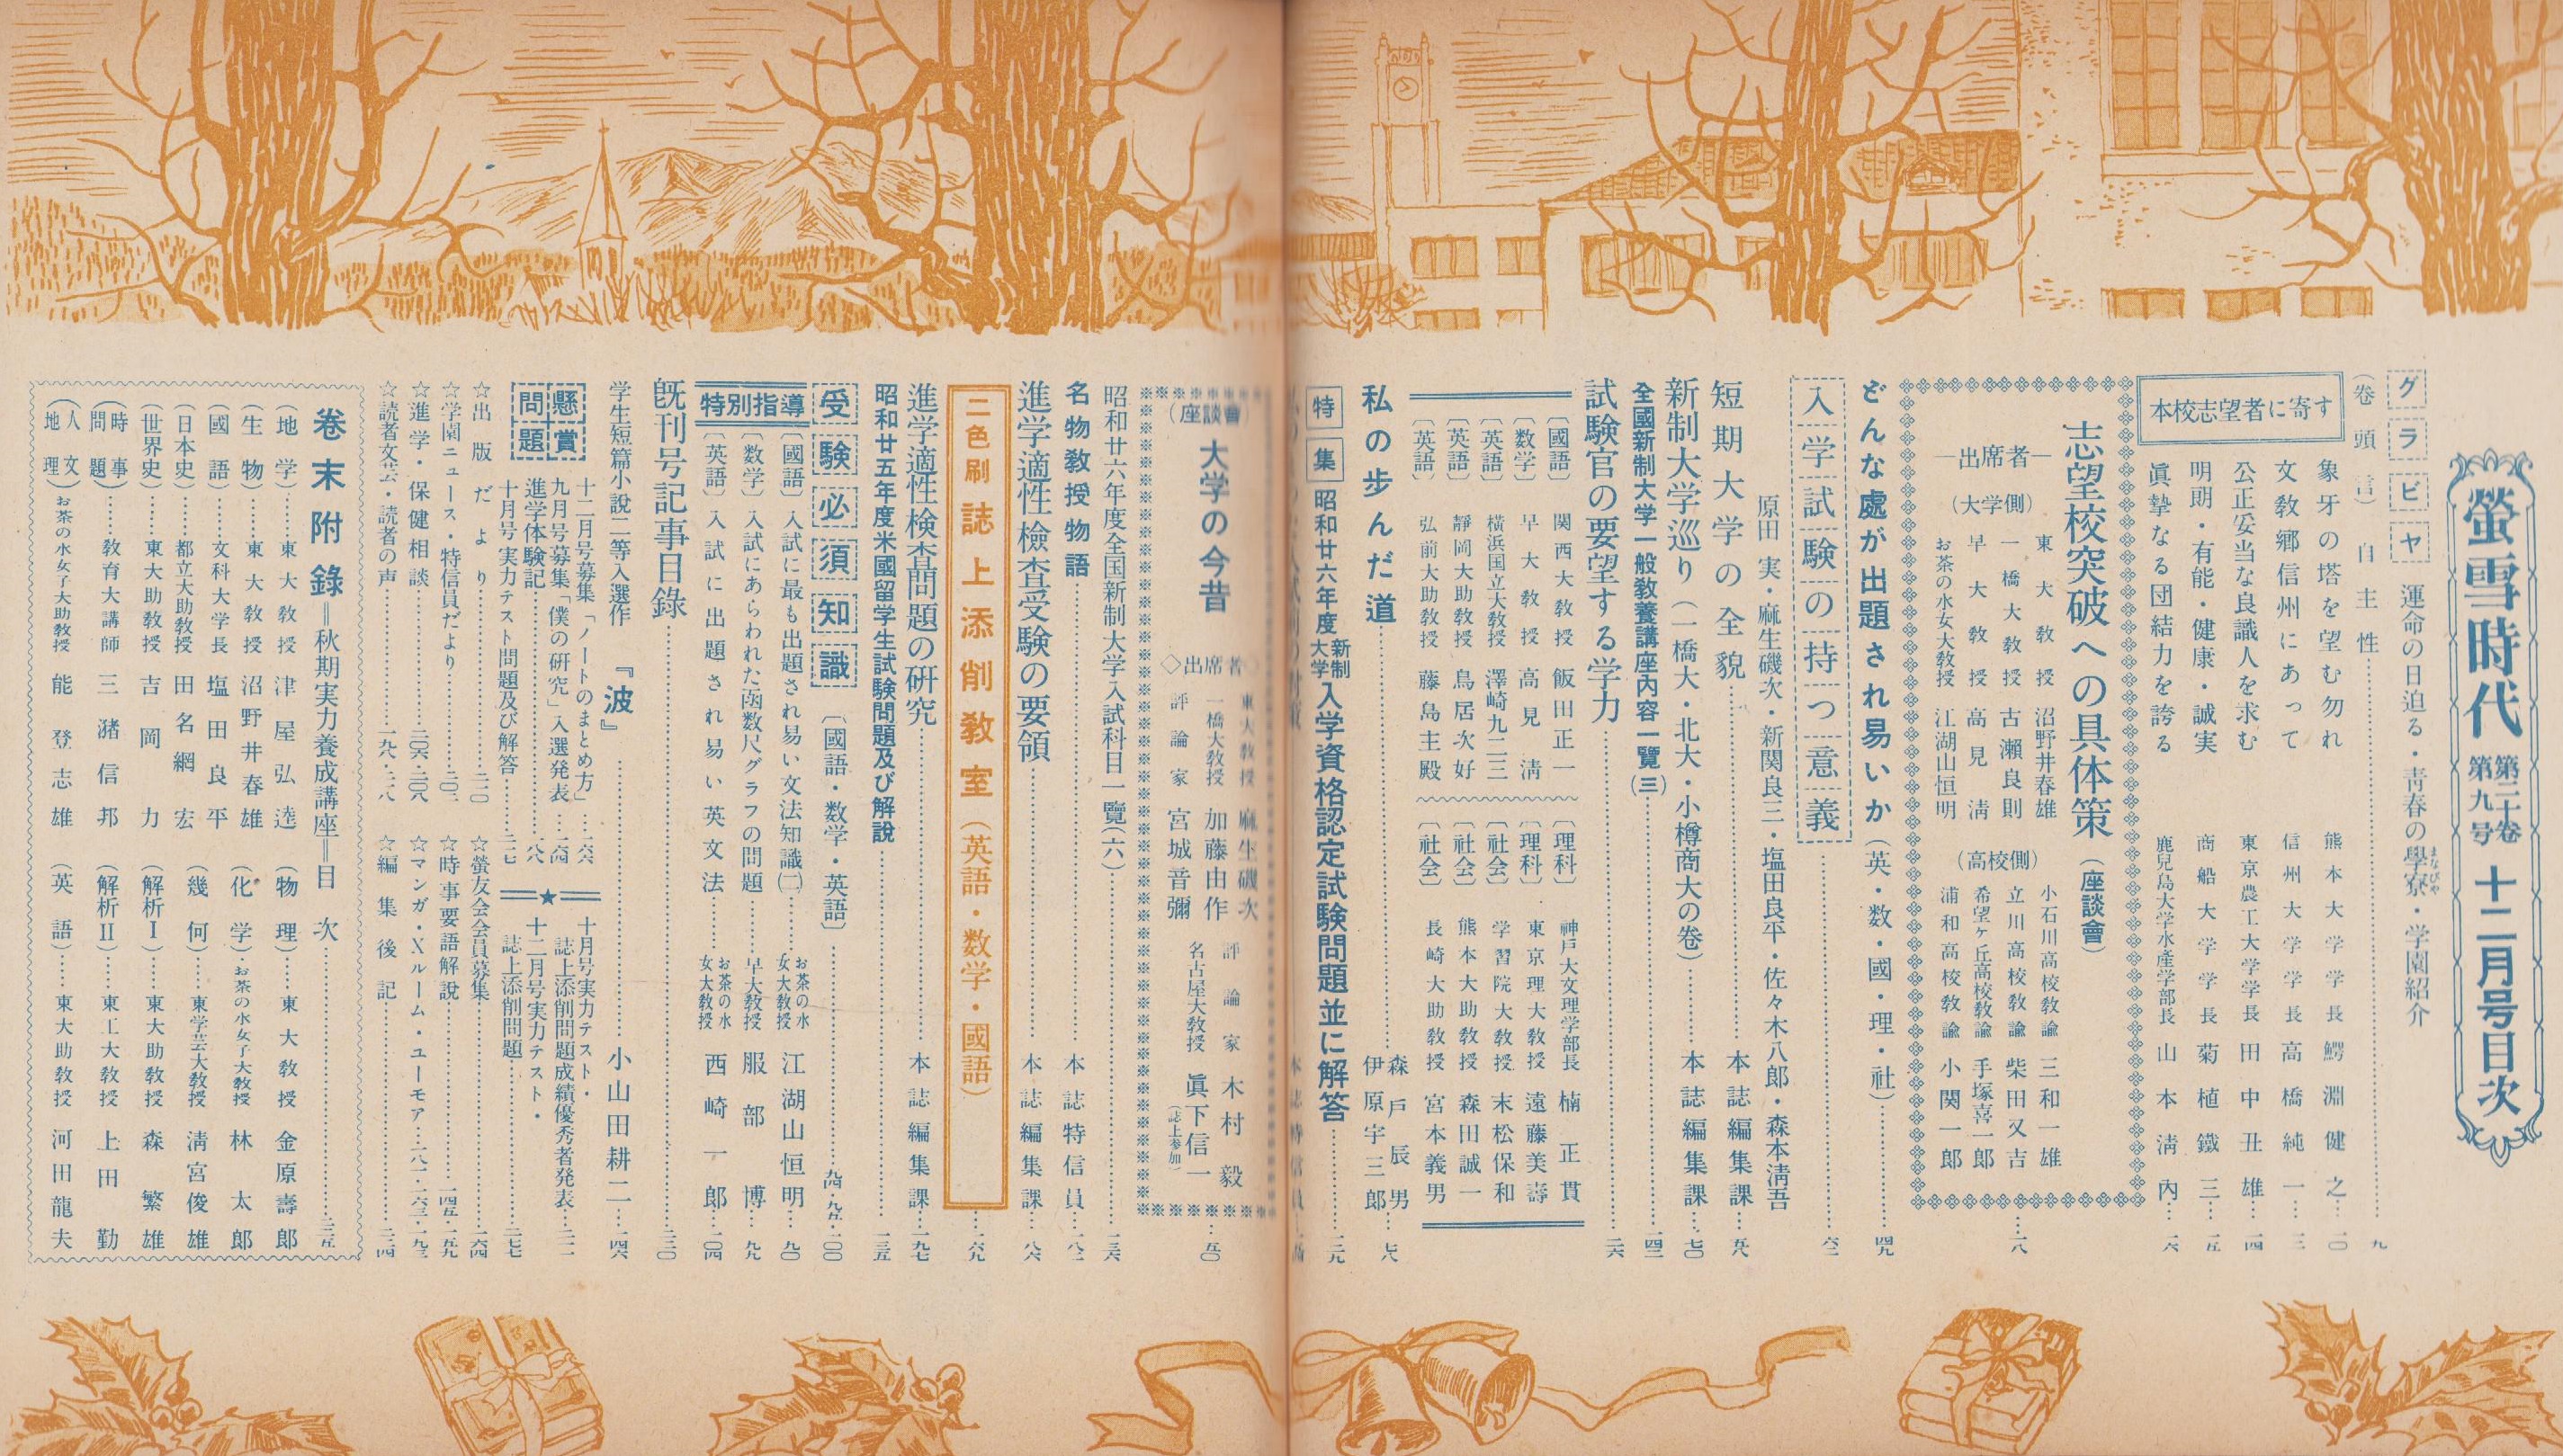 螢雪時代 第二十卷 第九号 十二月号目次
グラビヤ 運命の日迫る・青春の學寮・学園紹介
まなびや
(卷頭言) 自主性 九
本校志望者に寄す
象牙の塔を望む勿れ 熊本大学学長 鰐淵健之 一〇
文教郷信州にあって 信州大学学長 高橋純一 一二
公正妥当な良識人を求む 東京農工大学学長 田中丑雄 一四
明朗・有能・健康・誠実 商船大学学長 菊植鐵三 一五
眞摯なる団結力を誇る 鹿兒島大学水産学部長 山本淸內 一六
志望校突破への具体策 (座談會) 一八
―出席者―
(大学側)
東大教授 沼野井春雄
一橋大教授 古瀬良則
早大教授 高見淸
お茶の水女大教授 江湖山恒明
(高校側)
小石川高校教諭 三和一雄
立川高校教諭 柴田又吉
希望ヶ丘高校教諭 手塚喜一郎
浦和高校教諭 小関一郎
どんな處が出題され易いか (英・数・國・理・社) 四九
入学試験の持つ意義 六二
原田実・麻生磯次・新関良三・塩田良平・佐々木八郎・森本淸吾
短期大学の全貌 本誌編集課 五八
新制大学巡り (一橋大・北大・小樽商大の巻) 本誌編集課 七〇
全國新制大学一般教養講座內容一覽(三) 一四二
試験官の要望する学力 二六
〔國語〕 関西大教授 飯田正一
〔数学〕 早大教授 高見淸
〔英語〕 橫浜国立大教授 澤崎九二三
〔英語〕 靜岡大助教授 鳥居次好
〔英語〕 弘前大助教授 藤島主殿
〔理科〕 神戸大文理学部長 楠正貫
〔理科〕 東京理大教授 遠藤美壽
〔社会〕 学習院大教授 末松保和
〔社会〕 熊本大助教授 森田誠一
〔社会〕 長崎大助教授 宮本義男
私の步んだ道 森戸辰男 伊原宇三郎 七八
特集 昭和廿六年度新制大学入学資格認定試験問題並に解答 一三九
(座談會) 大学の今昔 五〇
◇出席者◇
東大教授 麻生磯次
一橋大教授 加藤由作
評論家 宮城音彌
評論家 木村毅
名古屋大教授 眞下信一
(誌上参加)
昭和廿六年度全国新制大学入試科目一覽(六) 一三六
名物教授物語 本誌特信員 一八二
進学適性檢査受験の要領 本誌編集課 八六
二色刷 誌上添削教室 (英語・数学・國語) 一六九
進学適性検査問題の研究 本誌編集課 一九七
昭和廿五年度米國留学生試験問題及び解說 一三五
受験必須知識 〔國語・数学・英語〕 九四・九五・一〇〇
特別指導
〔國語〕 入試に最も出題され易い文法知識(二) お茶の水女大教授 江湖山恒明 九〇
〔数学〕 入試にあらわれた函数尺グラフの問題 早大教授 服部博 九九
〔英語〕 入試に出題され易い英文法 お茶の水女大教授 西崎一郎 一〇四
既刊号記事目錄 二三〇
学生短篇小說二等入選作 『波』 小山田耕二 一四六
懸賞問題
十二月号募集「ノートのまとめ方」 一六六
九月号募集「僕の研究」入選発表 一六四
進学体験記 一八六
十月号実力テスト問題及び解答 二一七
十月号実力テスト・誌上添削問題成績優秀者発表 二一一
十二月号実力テスト・誌上添削問題 二七七
☆出版だより 二三〇
☆学園ニュース・特信員だより 二〇二
☆進学・保健相談 二〇六・二〇八
☆読者文芸・読者の声 一九八・二一八
☆螢友会会員募集 一六四
☆時事要語解說 一四五・一五九
☆マンガ・Xルーム・ユーモア 一八一・二六三・一九三
☆編集後記 二三四
卷末附錄=秋期実力養成講座=目次 二三五
(地学) 東大教授 津屋弘逵
(生物) 東大教授 沼野井春雄
(國語) 文科大学長 塩田良平
(日本史) 都立大助教授 田名網宏
(世界史) 東大助教授 吉岡力
(時事問題) 教育大講師 三潴信邦
(人文地理) お茶の水女子大助教授 能登志雄
(物理) 東大教授 金原壽郎
(化学) お茶の水女子大教授 林太郎
(幾何) 東学芸大教授 淸宮俊雄
(解析I) 東大助教授 森繁雄
(解析II) 東工大教授 上田勤
(英語) 東大助教授 河田龍夫